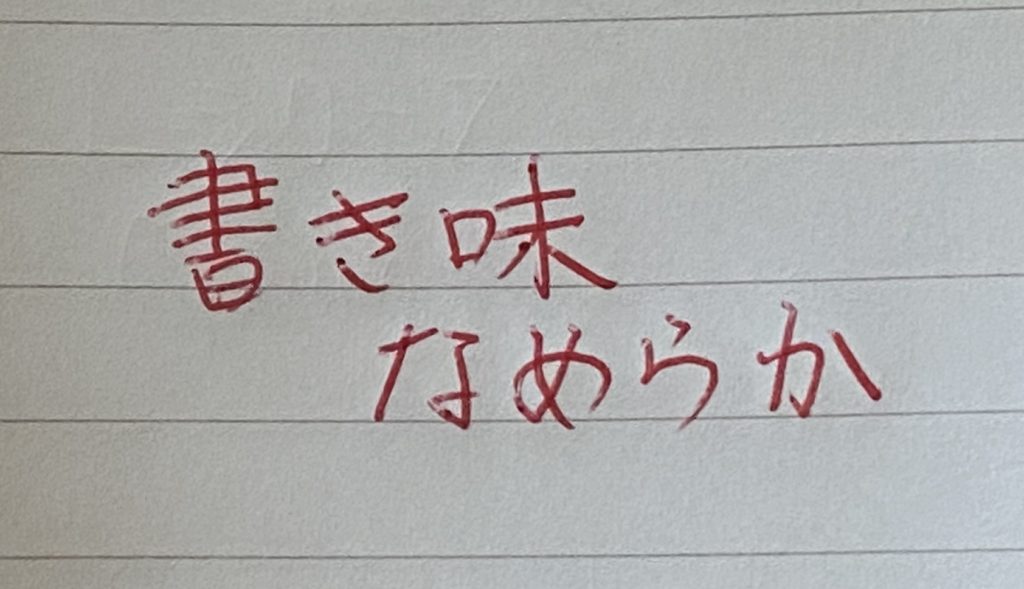 書き味
なめらか